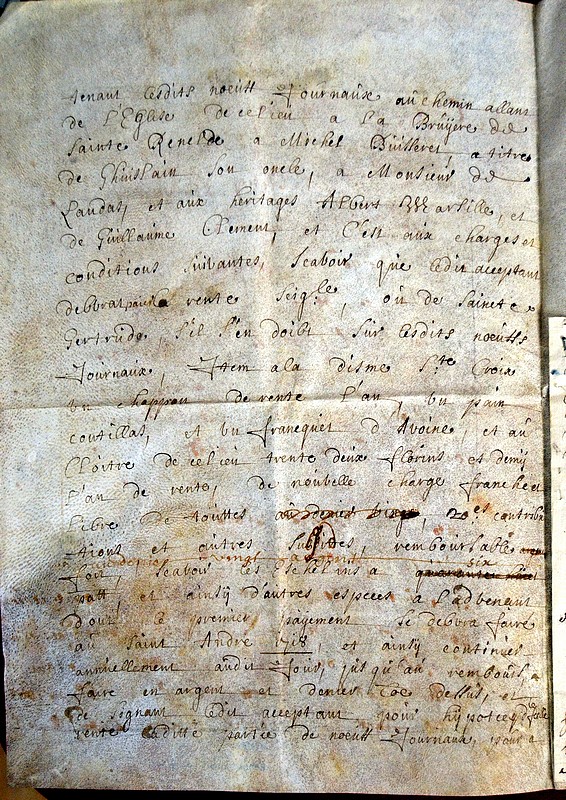 tenant lesdits noeuff Journaux au chemin allant
de L'Eglise de ce lieu a La Bruÿere de
Sainte Renelde a Michel Buisseret, a titre
de Ghuislain son oncle, a Monsieur de
Laudas, et aux heritages Albert Marsille, et
de Guillaume Clement, et C'est aux charges et
conditions suivantes, scavoir que ledit acceptant
debvrat paier la rente seig.le, ou de Saincte
Gertrude s'il s'en doibt sur lesdits noeuffs
Journaux, Item a la disme S.te Croix
un chappon de rente l'an, un pain
coutillas, et un francquet d'Avoine, et au
Cloitre de ce lieu trente deux florins et demÿ
l'an de rente, de nouvelle charge franche et
libre de touttes 20.es contribu
tions et autres subsides, remboursable
au denier vingt
fois, scavoir les schelins a six
patt, et ainsÿ d'autres especes a l'advenant
dont le premier payement se debvra faire
au Saint Andre 1718, et ainsÿ continuer
annuellement audit Jour, jusqu'au rembours,
faire en argent et denier coe dessus, et
de signant ledit acceptant pour hÿpotecq de
rente laditte partie de noeuff Journaux, pour